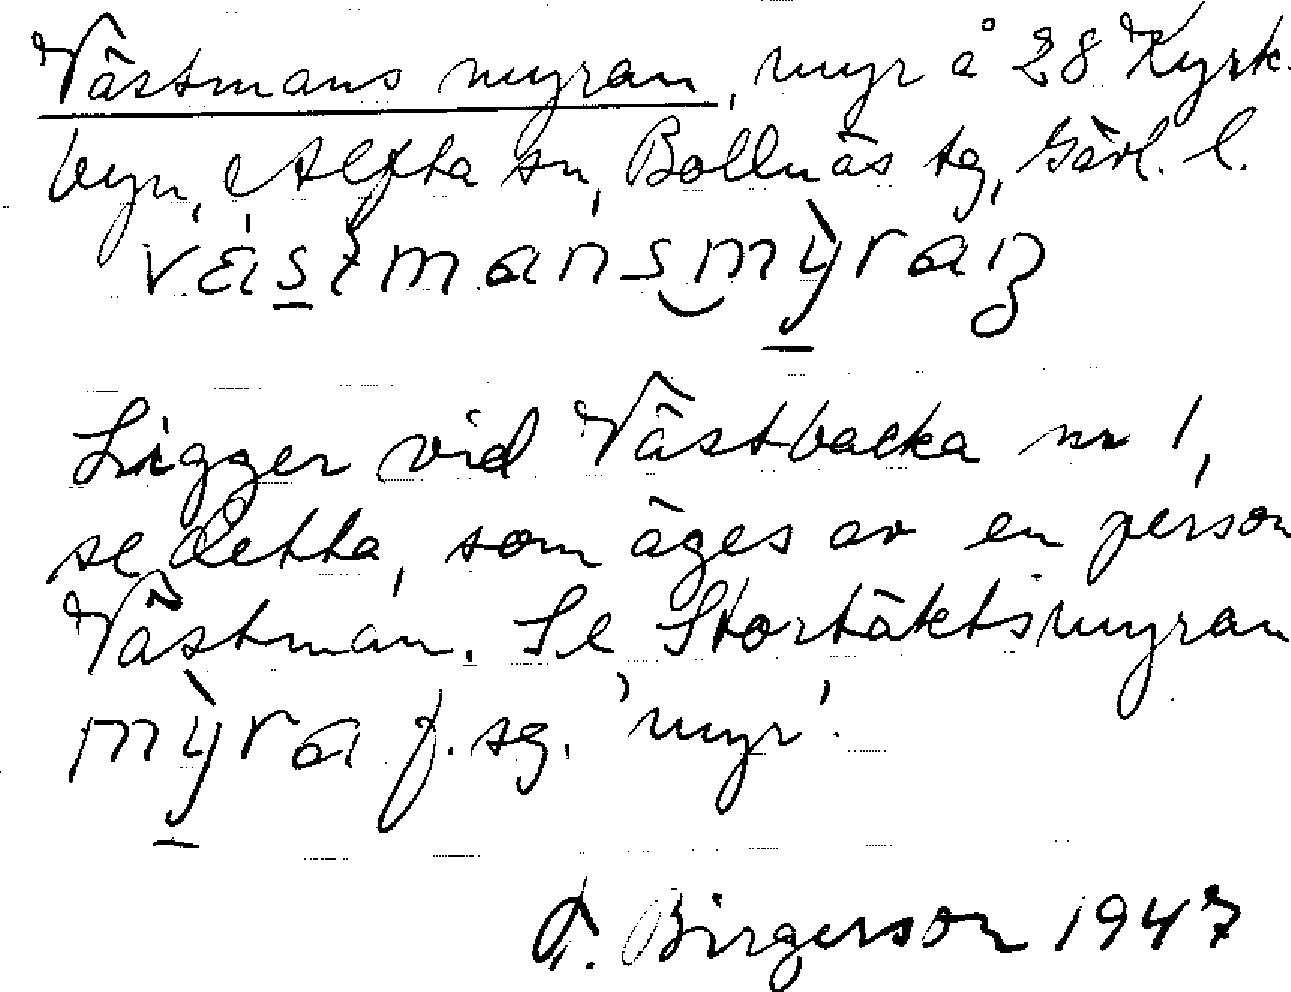 Västmansmyran, myr å 28 Kyrk-
byn, Alfta sn, Bollnäs tg, Gävl. l.
västmansmỳran
Ligger vid Västbacka nr 1,
se detta, som äges av en person
Västman. Se Stortäktsmyran
mỳra f. sg. 'myr'.
F. Birgerson 1947